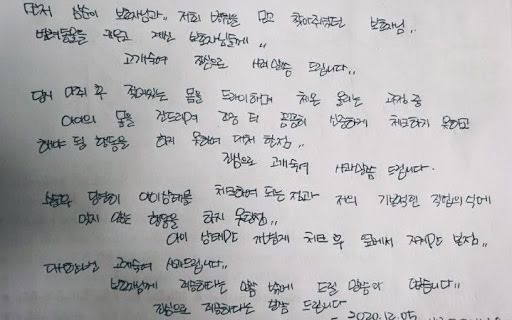 먼저 삼순이 보호자님과,, 저희 병원을 믿고 찾아주셨던 보호자님,
반려동물을 키우고 계신 보호자님들께,,
고개숙여 진심으로 사과말씀 드립니다,,
당시 마취 후 젖어있는 몸을 드라이하며 체온 올리는 과정 중
아이의 몸을 만드리며 꼼꼼히 신중하게 체크하지 못하고
해야 될 행동을 하지 못하여 대처한점,,
진심으로 고개숙여 사과말씀 드립니다.
당연히 아이상태를 체크하여 또는점과 저의 기본적인 직업의식에
맞지 않는 행동을 하지 못한점,,
아이 상태만 체크 후 옆에서 지켜만 보던점,,
다시한번 고개숙여 사과드립니다,,
보호자님께 죄송하다는 말씀 밖에 드릴 말씀이 없습니다,,
진심으로 죄송하다는 말씀 드립니다
2020.12.05